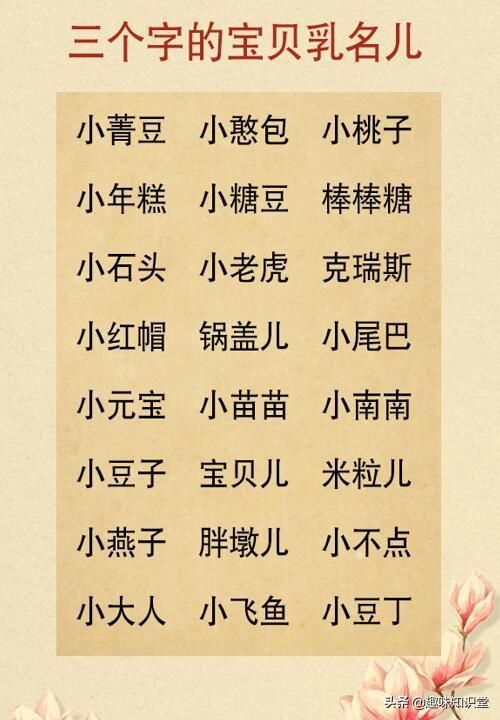 三个字的宝贝乳名儿
小菁豆 小憨包 小桃子
小年糕 小糖豆 棒棒糖
小石头 小老虎 克瑞斯
小红帽 锅盖儿 小尾巴
小元宝 小苗苗 小南南
小豆子 宝贝儿 米粒儿
小燕子 胖墩儿 小不点
小大人 小飞鱼 小豆丁
头条 @趣味知识堂